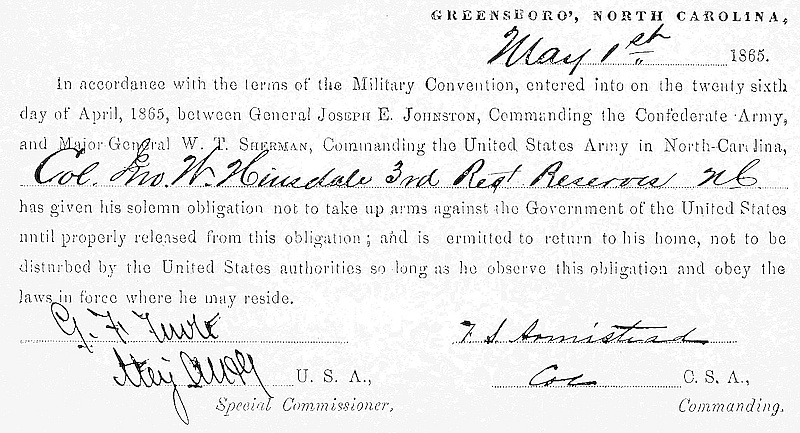 GREENSBORO', NORTH CAROLINA,
May 1st 1865.
In accordance with the terms of the Military Convention, entered into on the twenty sixth
day of April, 1865, between General JOSEPH E. JOHNSTON, Commanding the Confederate Army,
and Major-General W. T. SHERMAN, Commanding the United States Army in North-Carolina,
Col. Jno. W. Hinsdale 3rd Regt Reserves NC
has given his solemn obligation not to take up arms against the Government of the United States
until properly released from this obligation; and is ermitted to return to his home, not to be
disturbed by the United States authorities so long as he observe this obligation and obey the
laws in force where he may reside.
F. S. Armistead
U. S. A.,
Col C. S. A.,
Special Commissioner,
Commanding.